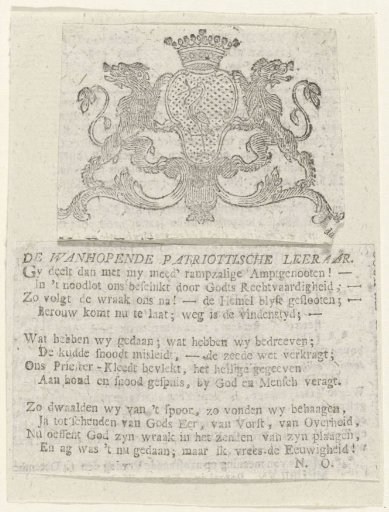 DE WANHOPENDE PATRIOTTISCHE LEERAAR.
Gy deelt dan met my meed' rampzalige Amptgenooten! —
In 't noodlot ons beschikt door Godts Rechtvaardigheid; —
Zo volgt de wraak ons na! — de Hemel blyft geslooten; —
Berouw komt nu te laat; weg is de vindenstyd; —
Wat hebben wy gedaan; wat hebben wy bedreeven;
De kudde snoodt misleidt, — de zeede wet verkragt;
Ons Priester-Kleedt bevlekt, het heilige gegeeven
Aan hond en snood gespuis, by God en Mensch veragt.
Zo dwaalden wy van 't spoor, zo vonden wy behaagen,
Ja tot schenden van Gods Eer, van Vorst, van Overheid,
Nu oeffent God zyn wraak in het zenden van zyn plaagen,
En ag was 't nu gedaan; maar ik vrees de Eeuwigheid!
N. O.